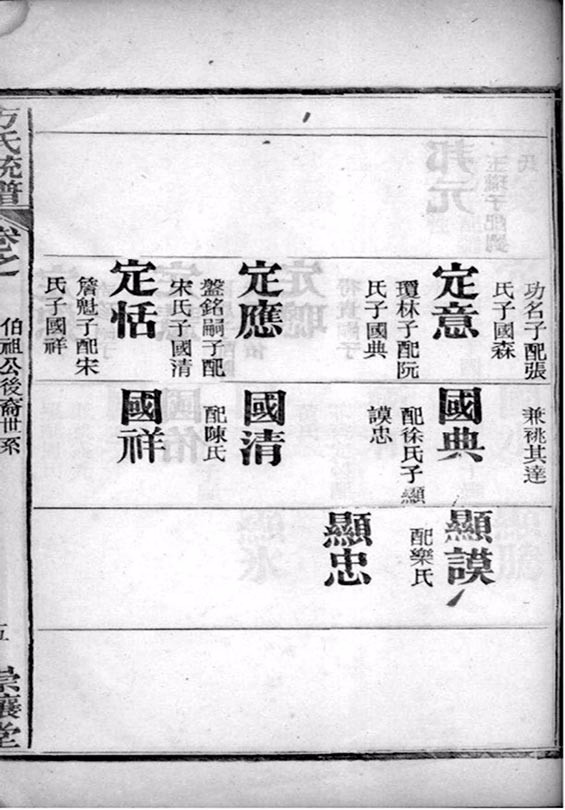 功名子配張
氏子國森
定意
瓊林子配阮
氏子國典
定應
盤銘嗣子配
宋氏子國清
定恬
詹魁子配宋
氏子國祥
兼祧其達
國典
配徐氏子顯
謨忠
國清
配陳氏
國祥
顯謨
配樂氏
顯忠
方氏統譜
卷之
伯祖公後裔世系
五